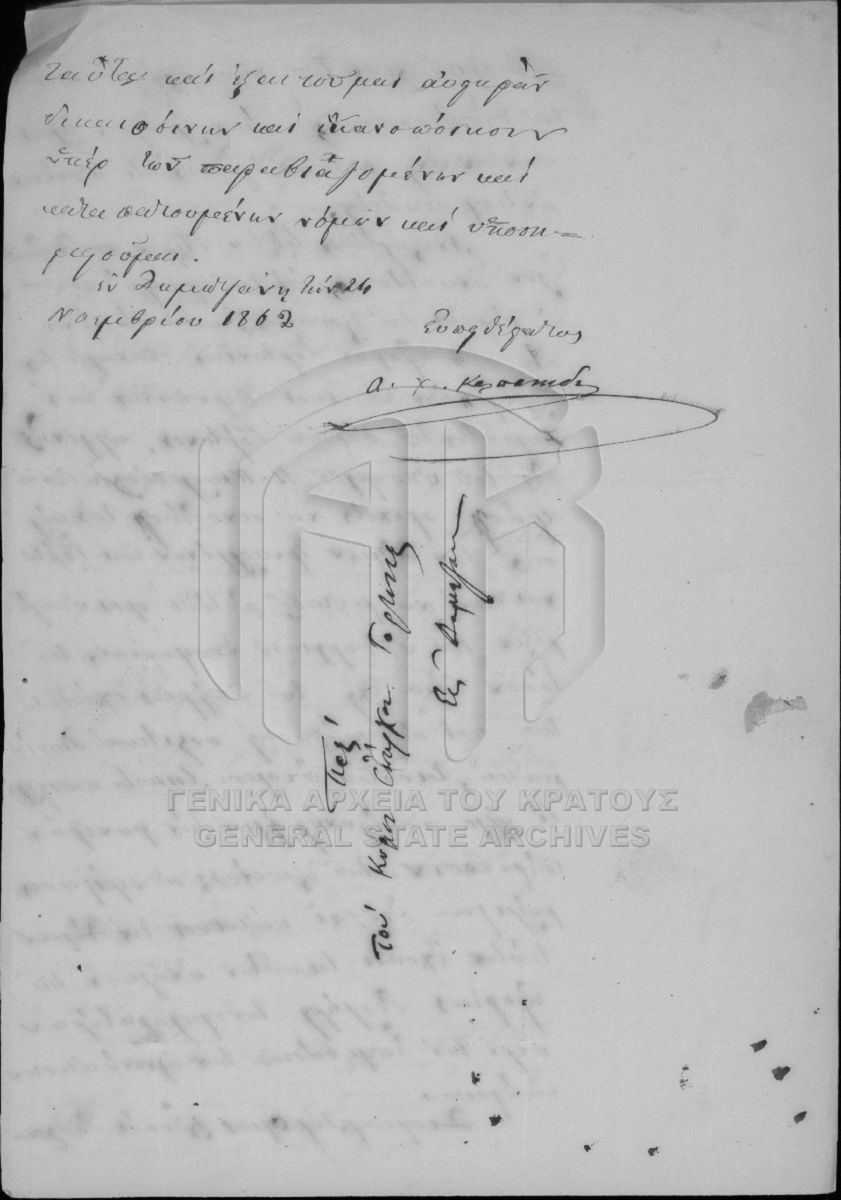 ταῦτα καὶ ἐξαιτοῦμαι αὐστηρὰν
δικαιοσύνην καὶ ἱκανοποίησιν
ὑπὲρ τῶν παραβιαζομένων καὶ
καταπατουμένων νόμων καὶ ὑποση-
μειοῦμαι.
ἐν Δημητζάνῃ τὴν 24
Νοεμβρίου 1862
Εὐπειθέστατος
Α. Χ.
Πρὸς
Τὸν Κύριον Ἔπαρχον Γορτυνίας
Εἰς Δημητζάναν
ΓΕΝΙΚΑ ΑΡΧΕΙΑ ΤΟΥ ΚΡΑΤΟΥΣ
GENERAL STATE ARCHIVES